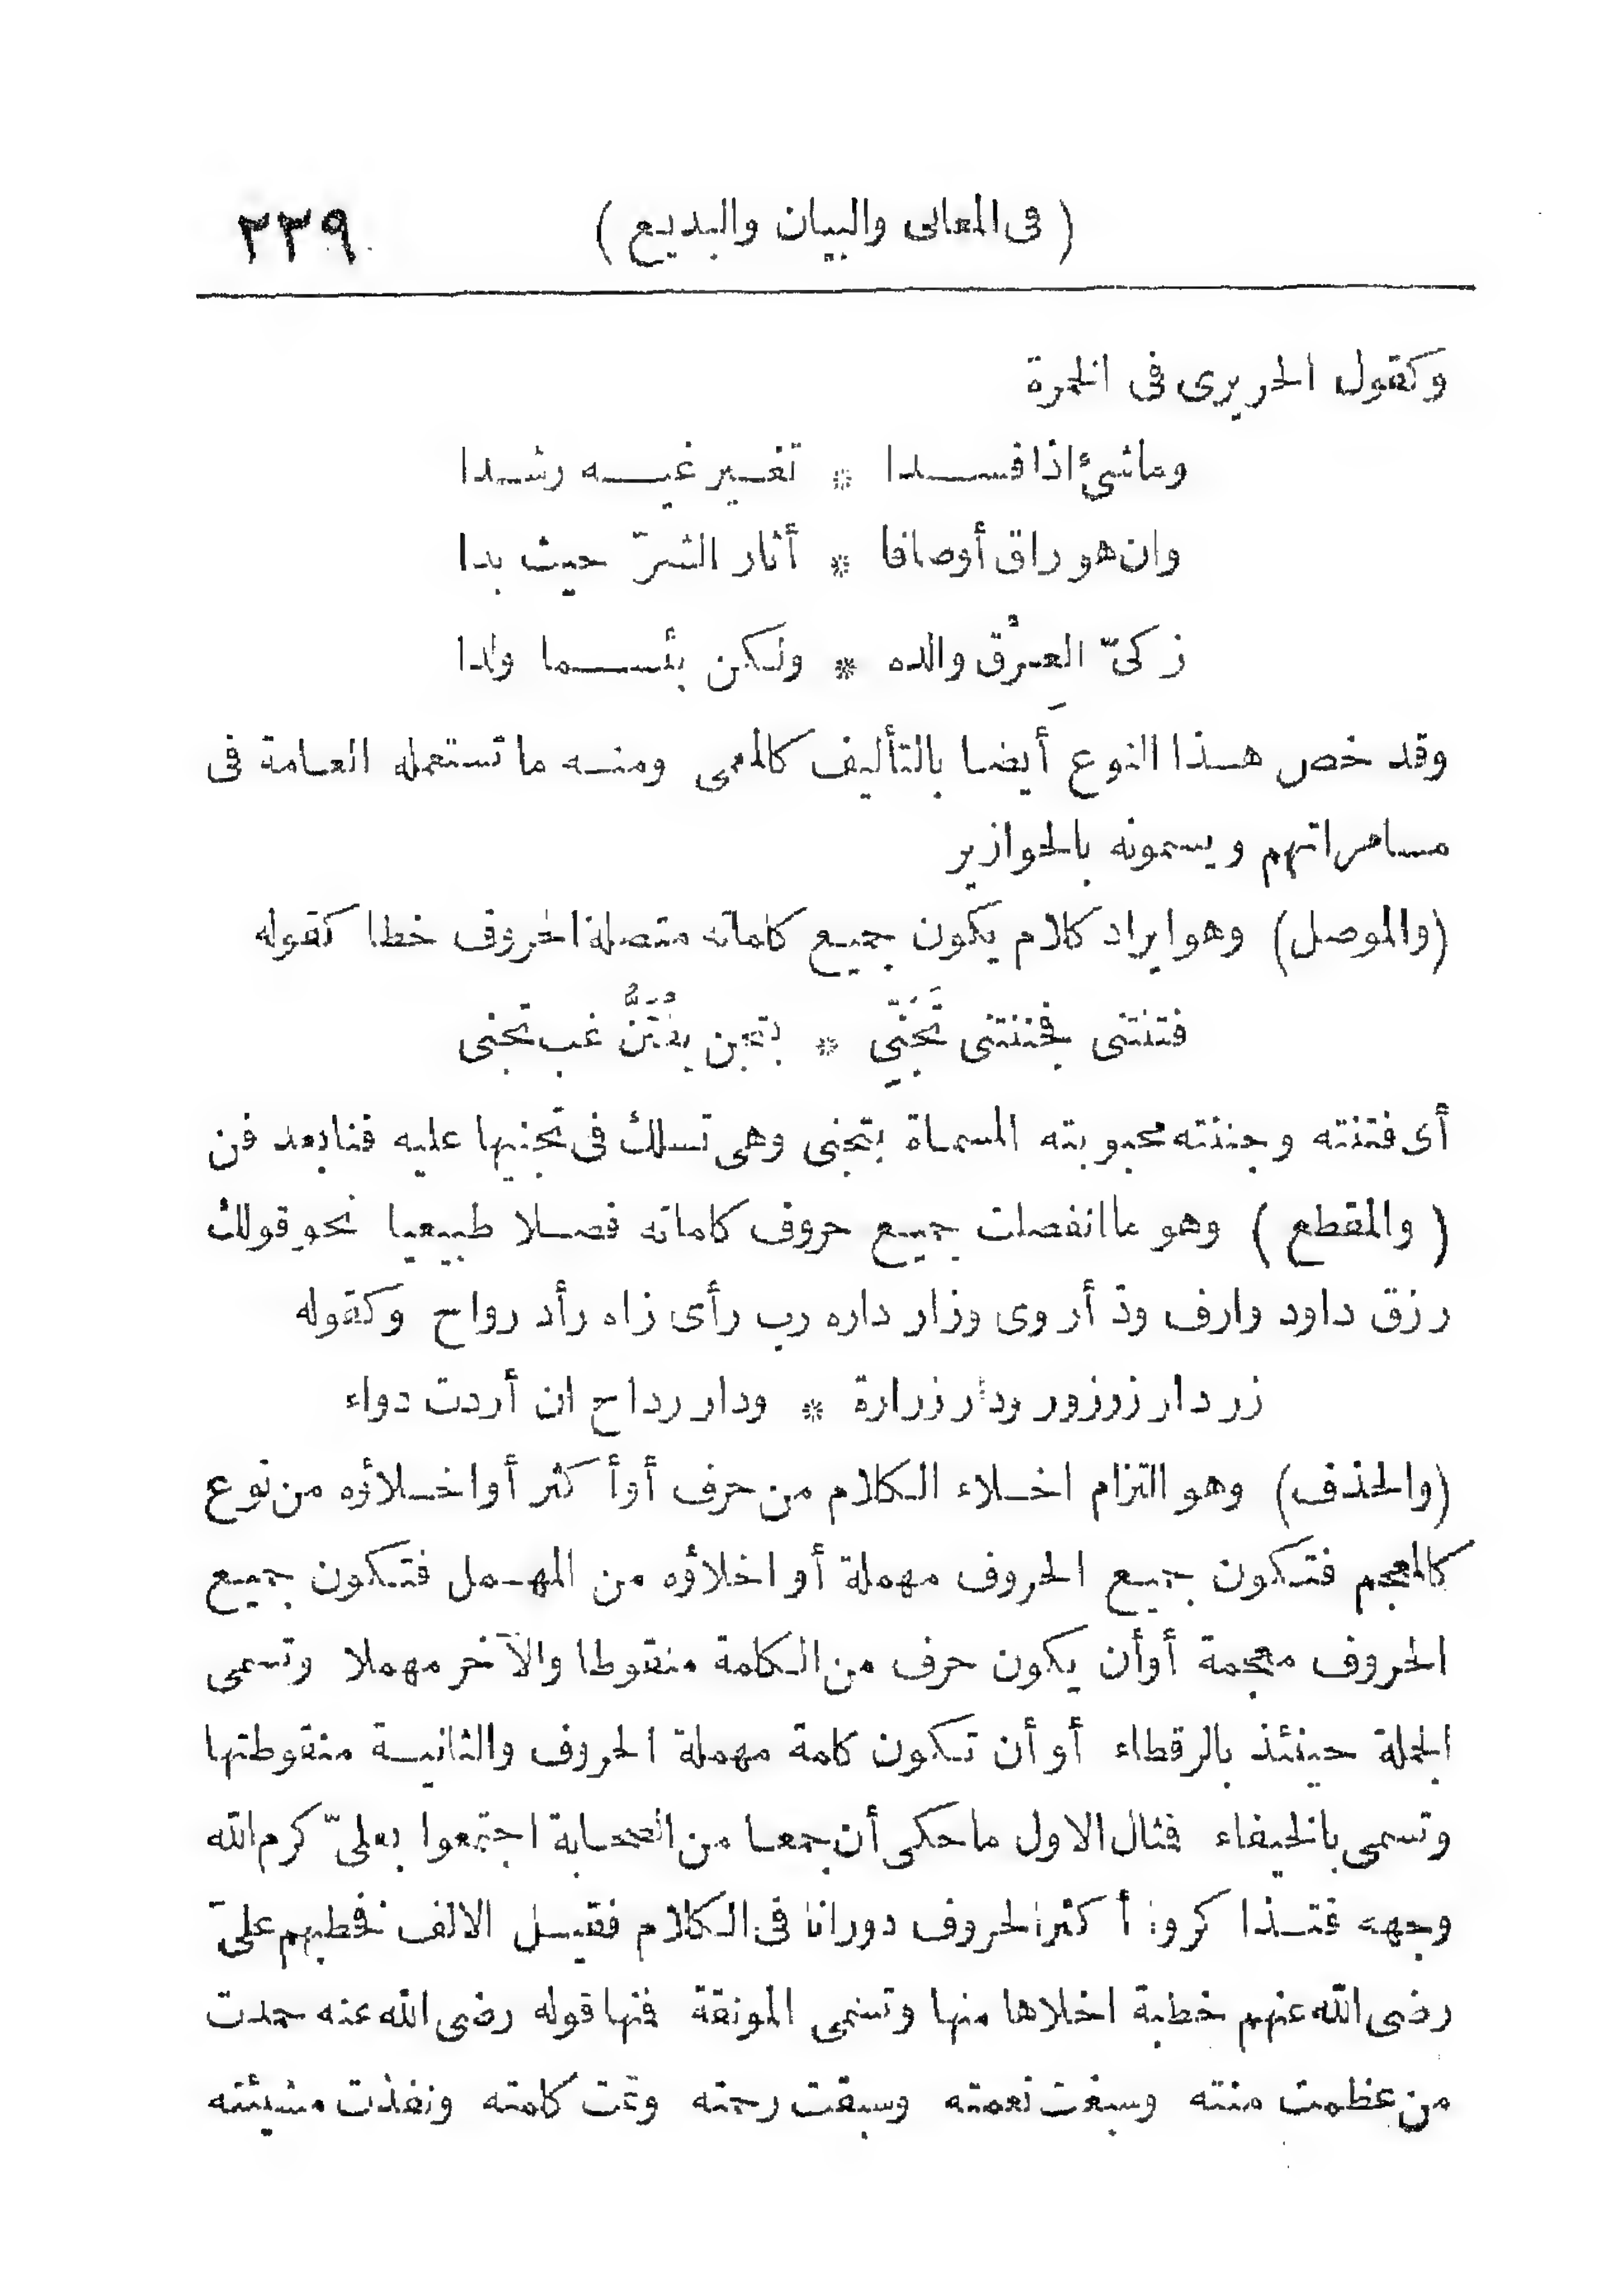 ( فى المعانى والبيان والبديع ) ٢٣٩
وكقول الحريرى فى الخمرة
وماشئ اذا فسدا * تغير غيه رشدا
وان هو راق أوصافا * أثار الشرّ حيث بدا
زكىّ العِرْق والده * ولكن بئسما ولدا
وقد خص هذا النوع أيضا بالتأليف كالمعمى ومنه ما تستعمله العامة فى
مسامراتهم ويسمونه بالحوازير
(والموصل) وهو ايراد كلام يكون جميع كلماته متصلة الحروف خطا كقوله
فتنتنى فجننتنى تَجَنِّي * بتجن يفْتَنُّ غب تجنى
أى فتنته وجننته محبوبته المسماة بتجنى وهى تسلك فى تجنيها عليه فنا بعد فن
( والمقطع ) وهو ما انفصلت جميع حروف كلماته فصلا طبيعيا نحو قولك
رزق داود وارف ودّ أروى وزار داره رب رأى زاه رأد رواح وكقوله
زر دار زرزور ودار زرارة * ودار رداح ان أردت دواء
(والحذف) وهو التزام اخلاء الكلام من حرف أو أكثر أو اخلاؤه من نوع
كالمعجم فتكون جميع الحروف مهملة أو اخلاؤه من المهمل فتكون جميع
الحروف معجمة أو أن يكون حرف من الكلمة منقوطا والآخر مهملا وتسمى
الجملة حينئذ بالرقطاء أو أن تكون كلمة مهملة الحروف والثانية منقوطتها
وتسمى بالخيفاء فمثال الاول ما حكى أن جمعا من الصحابة اجتمعوا بعلىّ كرم الله
وجهه فتذاكروا أكثر الحروف دورانا فى الكلام فقيل الالف فخطبهم علىّ
رضى الله عنهم خطبة اخلاها منها وتسمى المونقة فمنها قوله رضى الله عنه حمدت
من عظمت منته وسبغت نعمته وسبقت رحمته وتمت كلمته ونفذت مشيئته